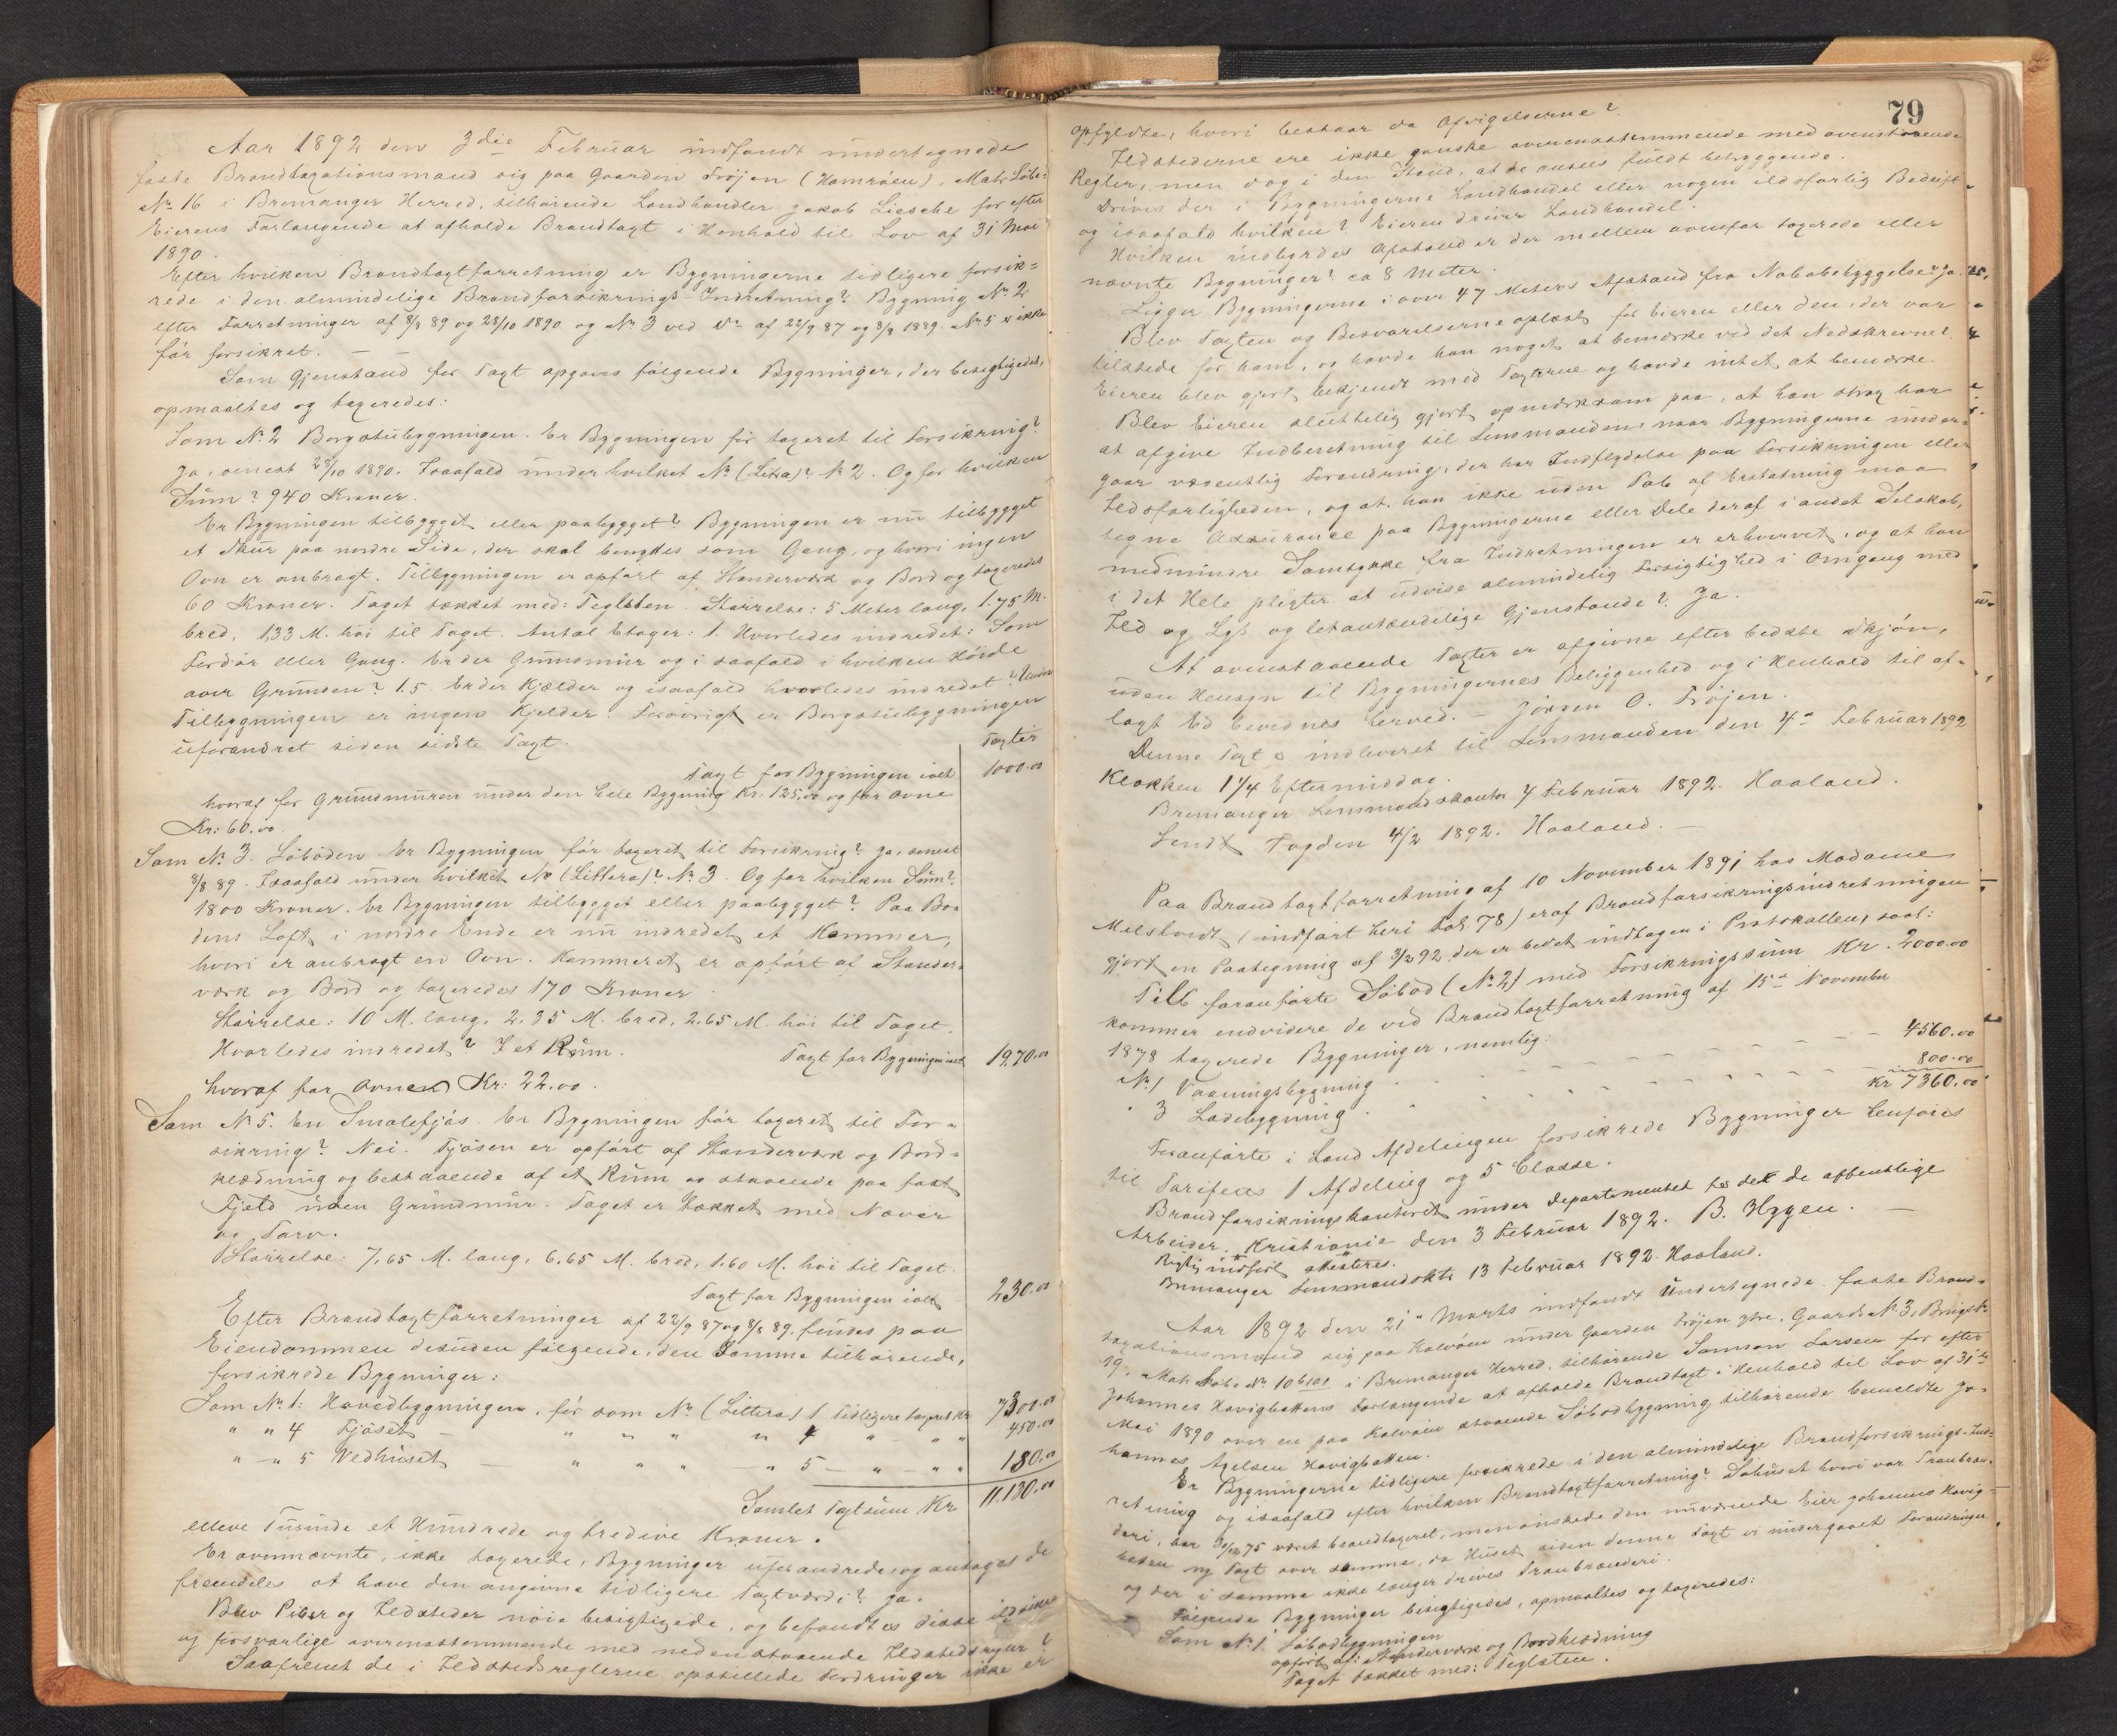 Aar 1892 den 3die Februar indfandt undertegnede
faste Brandtaxationsmand sig paa Gaarden Frøjen (Hamrøen), Matr. Løbe=
Nr. 16 i Bremanger Herred, tilhørende Landhandler Jakob Liesche for efter
Eierens Forlangende at afholde Brandtaxt i Henhold til Lov af 31 Mai
1890.
Efter hvilken Brandtaxtforretning er Bygningerne tidligere forsik=
rede i den almindelige Brandforsikrings-Indretning? Bygning No 2
efter Forretninger af 8/8 89 og 28/10 1890 og No 3 ved do af 22/9 87 og 8/8 1889. No 5 er ikke
før forsikret. —
Som Gjenstand for Taxt opgaves følgende Bygninger, der besigtigedes,
opmaaltes og taxeredes:
Som No 2 Borgstubygningen. Er Bygningen før taxeret til Forsikring?
Ja, senest 28/10 1890. Isaafald under hvilket No (Litra)? No 2. Og for hvilken
Sum? 940 Kroner.
Er Bygningen tilbygget eller paabygget? Bygningen er nu tilbygget
et Skur paa nordre Side, der skal benyttes som Gang, og hvori ingen
Ovn er anbragt. Tilbygningen er opført af Standerværk og Bord og taxeredes
60 Kroner. Taget tækket med: Teglsten. Størrelse: 5 Meter lang, 1.75 M.
bred, 1,33 M. høi til Taget. Antal Etager: 1. Hvorledes indredet: Som
Fordør eller Gang. Er der Grunnmur og i saafald i hvilken Høide
over Grunden? 1.5. Er der Kjælder og isaafald hvorledes indredet? Under
Tilbygningen er ingen Kjelder. Forøvrigt er Borgstubygningen
uforandret siden sidste Taxt.
Taxter
Taxt for Bygningen ialt 1000.00
hvoraf for Grundmuren under den hele Bygning Kr: 125,00 og for Ovne
Kr: 60.00.
Som No 3. Søboden. Er Bygningen før taxeret til Forsikring? Ja, senest
8/8 89. Isaafald under hvilket No (Littera)? No 3. Og for hvilken Sum?
1800 Kroner. Er Bygningen tilbygget eller paabygget? Paa Bo=
dens Loft i nordre Ende er nu indredet et Kammer,
hvori er anbragt en Ovn. Kammeret er opført af Stander=
værk og Bord og taxeredes 170 Kroner.
Størrelse: 10 M. lang, 2,35 M. bred, 2.65 M. høi til Taget.
Hvorledes indredet? I et Rum. Taxt for Bygningen ialt 1970.00
hvoraf for Ovnen Kr: 22.00.
Som No 5. En Smalefjøs. Er Bygningen før taxeret til For=
sikring? Nei. Fjøsen er opført af Standerværk og Bord=
klædning og bestaaende af et Rum og staaende paa fast
Fjeld uden Grundmur. Taget er tækket med Næver
og Torv.
Størrelse: 7,65 M. lang, 6,65 M. bred, 1.60 M. høi til Taget.
Taxt for Bygningen ialt 230.00
Efter Brandtaxtforretninger af 22/9 87 og 8/8 89. findes paa
Eiendommen desuden følgende, den Samme tilhørende,
forsikrede Bygninger:
Som No 1: Hovedbygningen, før som No (Littera) 1 Tidligere taxeret Kr 7300.00
" " 4 Fjøset — " " " " 4 " " " 450.00
" — " 5 Vedhuset — " " " — " 5 — " — " " 180.00
Samlet Taxtsum Kr 11.130.00
elleve Tusinde et Hundrede og tredive Kroner.
Er ovennævnte, ikke taxerede, Bygninger uforandrede, og antages de
fremdeles at have den angivne tidligere Taxtværdi? Ja.
Blev Piber og Ildsteder nøie besigtigede, og befandtes disse ildsikre
og forsvarlige overensstemmende med nedenstaaende Ildstedsregler?
Saafremt de i Ildstedsreglerne opstillede Fordringer ikke er
79
opfyldte, hvori bestaar da Afvigelserne?
Ildstederne ere ikke ganske overensstemmende med ovenstaaende
Regler, men dog i den Stand, at de ansees fuldt betryggende.
Drives der i Bygningerne Landhandel eller nogen ildsfarlig Bedrift
og isaafald hvilken? Eieren driver Landhandel.
Hvilken indbyrdes Afstand er der mellem ovenfor taxerede eller
nævnte Bygninger? ca 8 Meter.
Ligger Bygningerne i over 47 Meters Afstand fra Nabobebyggelse? Ja.
Blev Taxten og Besvarelserne oplæst for Eieren eller den, der var
tilstede for ham, og havde han noget at bemærke ved det Nedskrevne?
Eieren blev gjort bekjendt med Taxterne og havde intet at bemærke.
Blev Eieren sluttelig gjort opmærksom paa, at han strax har
at afgive Indberetning til Lensmanden, naar Bygningerne under=
gaar væsentlig Forandring, der har Indflydelse paa Forsikringen eller
Ildsfarligheden, og at han ikke uden Tab af Erstatning maa
tegne Assurance paa Bygningerne eller Dele deraf i andet Selskab,
medmindre Samtykke fra Indretningen er erhvervet, og at han
i det Hele pligter at udvise almindelig Forsigtighed i Omgang med
Ild og Lys og letantændelige Gjenstande? Ja.
At ovenstaaende Taxter er afgivne efter bedste Skjøn,
uden Hensyn til Bygningernes Beliggenhed og i Henhold til af=
lagt Ed bevidnes herved. — Jørgen O. Frøjen.
Denne Taxt er indleveret til Lensmanden den 4de Februar 1892
Klokken 1 1/4 Eftermiddag.
Bremanger Lensmandskontor 4 Februar 1892. Haaland.
Sendt Fogden 4/2 1892. Haaland. —
Paa Brandtaxtforretning af 10 November 1891 hos Madame
(indført heri Fol. 78) er af Brandforsikringsindretningen
gjort en Paategning af 3/2 92, der er bedet indtagen i Protokollen, saal:
Till foranførte Søbod (No 2) med Forsikringssum Kr. 2000.00
kommer endvidere de ved Brandtaxtforretning af 15de November
1878 taxerede Bygninger, nemlig:
No 1 Vaaningsbygning 4560.00
" 3 Ladebygning 800.00
Kr 7360.00
Foranførte i Land Afdelingen forsikrede Bygninger henføres
til Tarifens 1 Afdeling og 5 Classe.
Brandforsikringskontoret under Departementet for det de offentlige
Arbeider. Kristiania den 3 Februar 1892. B. Hygen. —
Rigtig indført attesteres.
Bremanger Lensmandskt. 13 Februar 1892. Haaland.
Aar 1892 den 21de Marts indfandt Undertegnede faste Brand=
taxationsmand sig paa Kalvøen under Gaarden Frøjen ytre, Gaards No 3, Brugs No
19, Matr. Løbe No 10 i Bremanger Herred, tilhørende Samson Larsen for efter
Johannes Havigbakkens Forlangende at afholde Brandtaxt i Henhold til Lov af 31te
Mai 1890 over en paa Kalvøen staaende Søbodbygning tilhørende bemeldte Jo=
hannes Havigbakken.
Er Bygningerne tidligere forsikrede i den almindelige Brandforsikrings-Ind=
retning og isaafald efter hvilken Brandtaxtforretning? Søhuset hvori var Tranbræn=
deri, har været brandtaxeret, men ønskede den nuværende Eier Johannes Havig=
bakken ny Taxt over samme, da Huset siden denne Taxt er undergaaet Forandringer,
og der i samme ikke længer drives Tranbrænderi.
Følgende Bygninger besigtigedes, opmaaltes og taxeredes:
Som No 1. Søbodbygningen
opført af: Standerværk og Bordklædning
Taget tækket med: Teglsten.